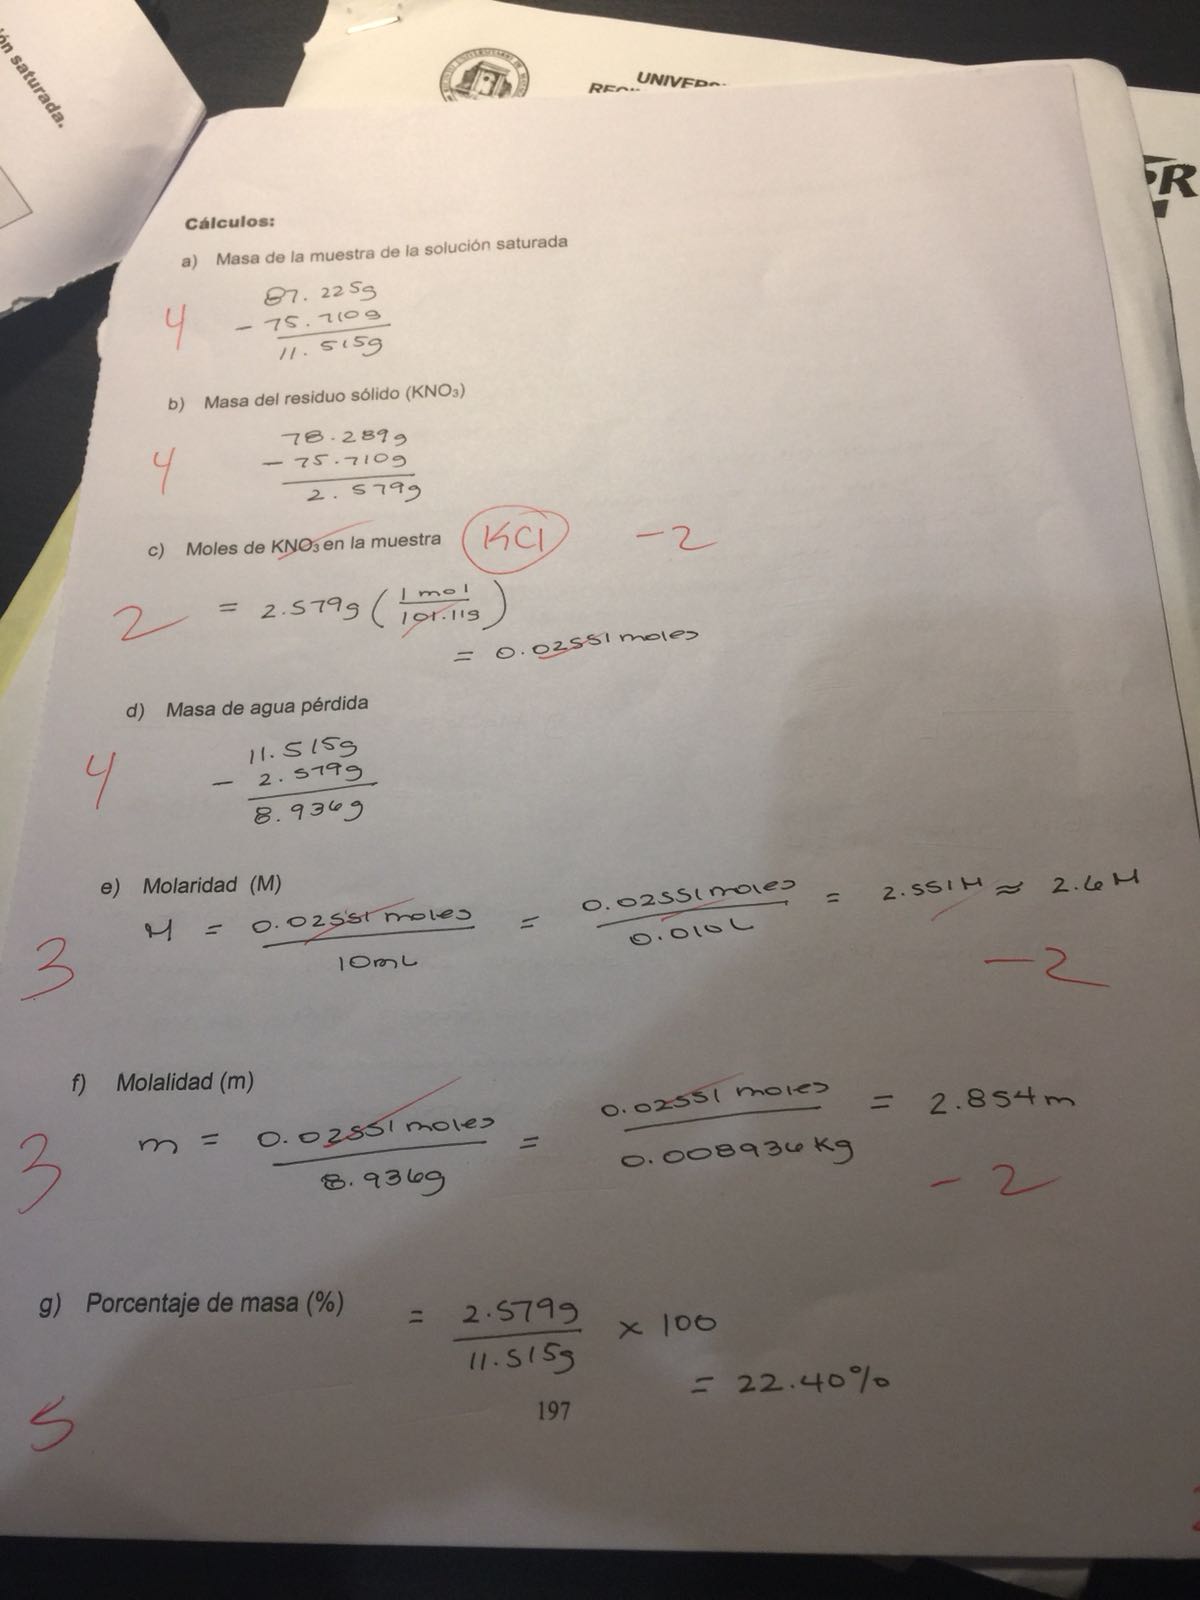 ón saturada.
UNIVER
SR
Cálculos:
a) Masa de la muestra de la solución saturada
87.225g
4
- 75.710g
11.515g
b) Masa del residuo sólido (KNO₃)
78.289g
4
- 75.710g
2.579g
c) Moles de KNO₃ en la muestra KCl -2
2
= 2.579g (1 mol / 101.11g)
= 0.02551 moles
d) Masa de agua pérdida
11.515g
4
- 2.579g
8.936g
e) Molaridad (M)
M = 0.02551 moles / 10mL = 0.02551 moles / 0.010L = 2.551M ≈ 2.6M
3
-2
f) Molalidad (m)
m = 0.02551 moles / 8.936g = 0.02551 moles / 0.008936 kg = 2.854m
3
-2
g) Porcentaje de masa (%) = 2.579g / 11.515g x 100
= 22.40%
5
197